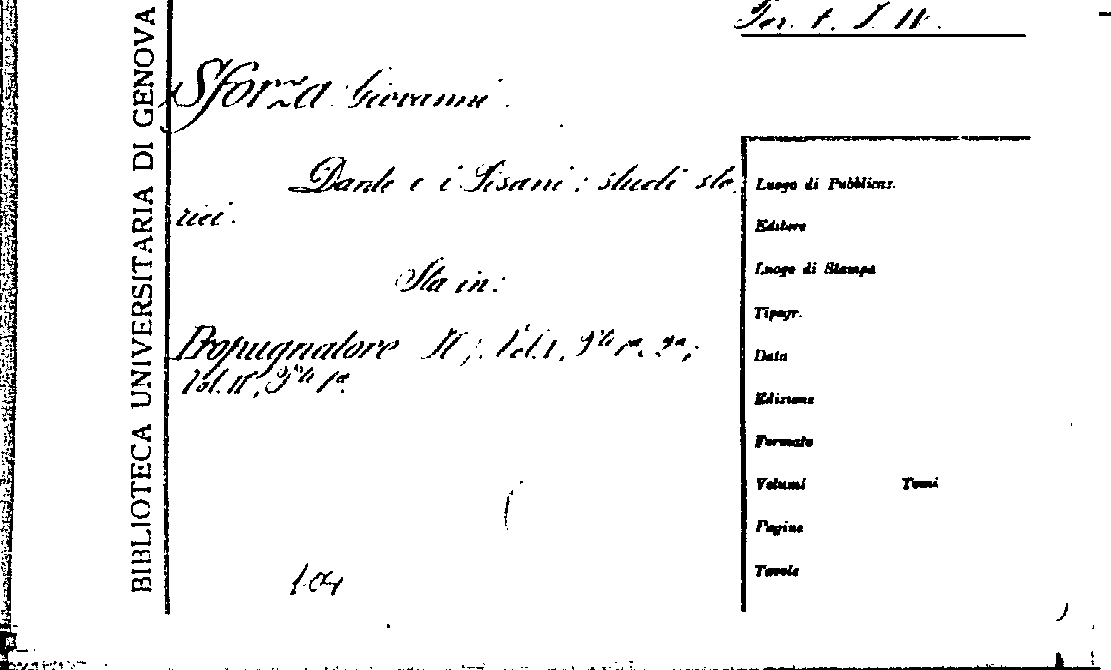 Per. t. I. 11.
BIBLIOTECA UNIVERSITARIA DI GENOVA
Sforza Giovanni.
Dante e i Pisani: studi sto-
rici.
Sta in:
Propugnatore II; Vol. I, Pte 1a, 2a;
Vol. II, Pte 1a.
104
Luogo di Pubblicaz.
Editore
Luogo di Stampa
Tipogr.
Data
Edizione
Formato
Volumi Tomi
Pagine
Tavole